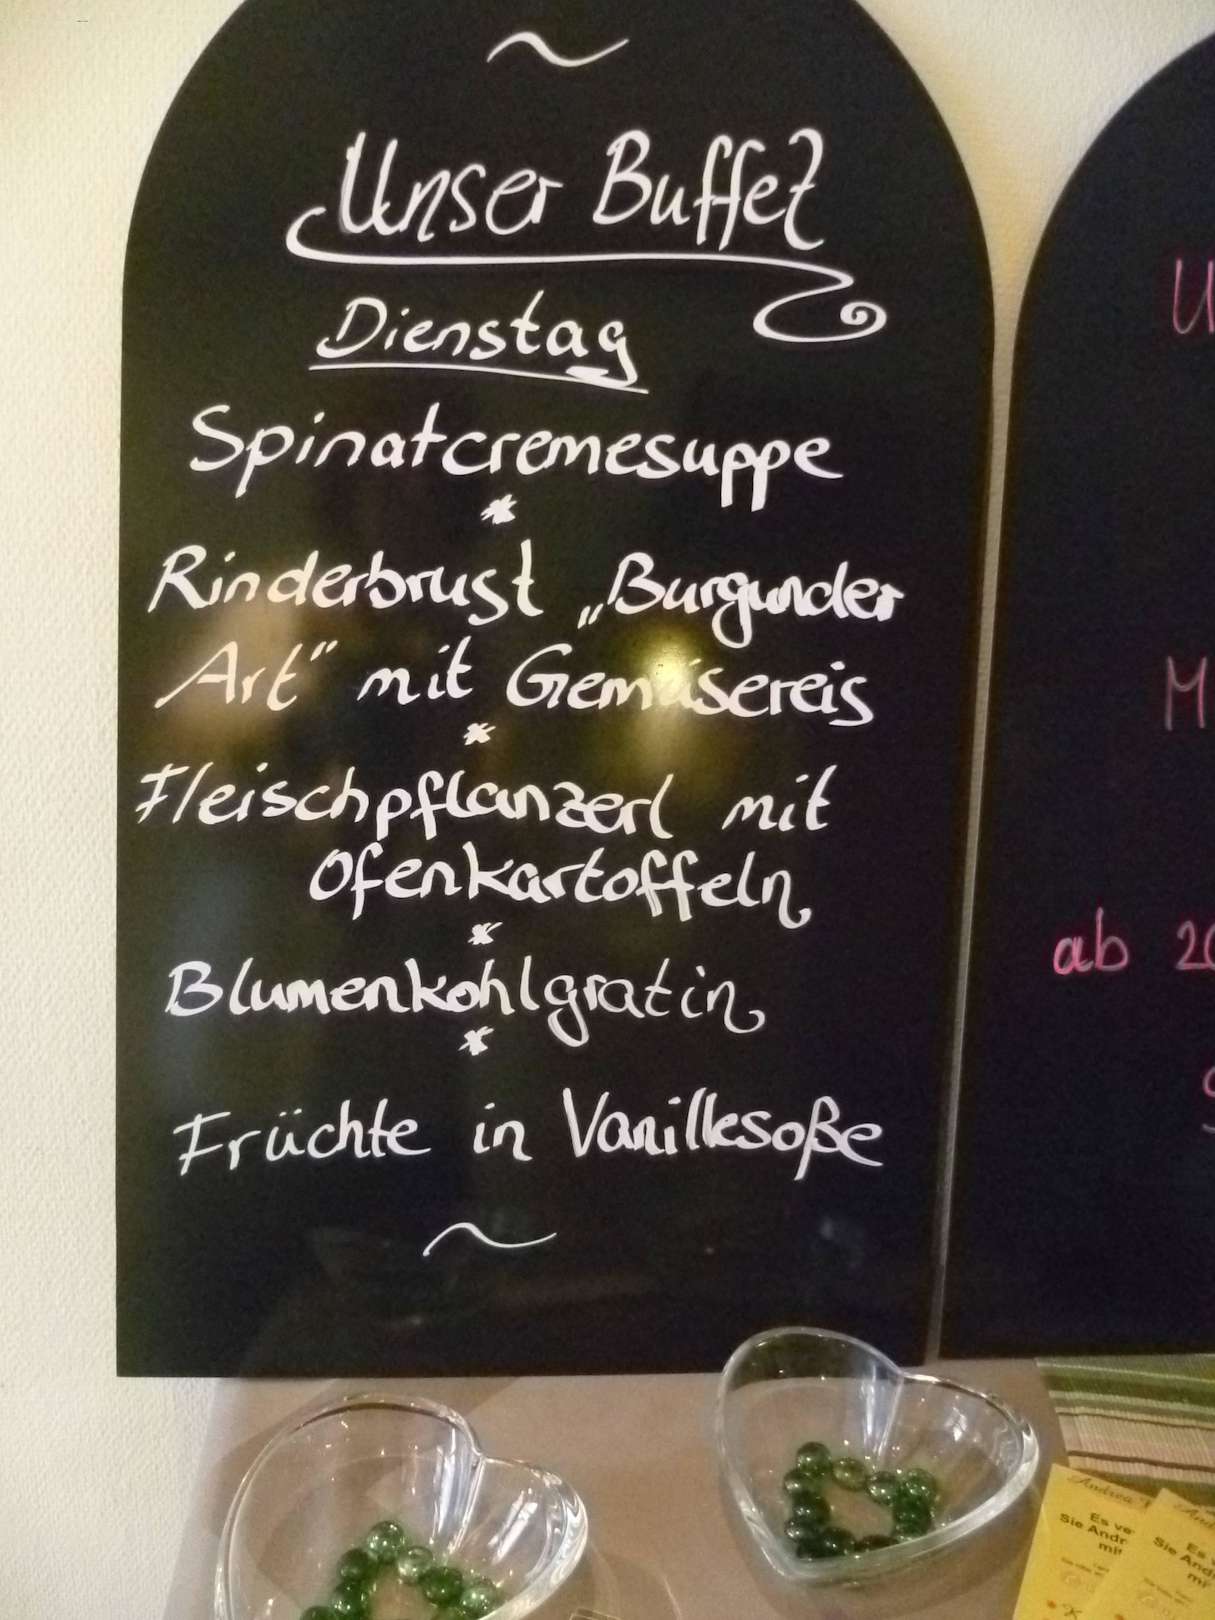 ~
Unser Buffet
Dienstag
Spinatcremesuppe
*
Rinderbrust „Burgunder
Art" mit Gemüsereis
*
Fleischpflanzerl mit
Ofenkartoffeln
*
Blumenkohlgratin
*
Früchte in Vanillesoße
~
U
M
ab 20
Andrea
Es ve
Sie Andr
mit
Es v
Sie An
mi